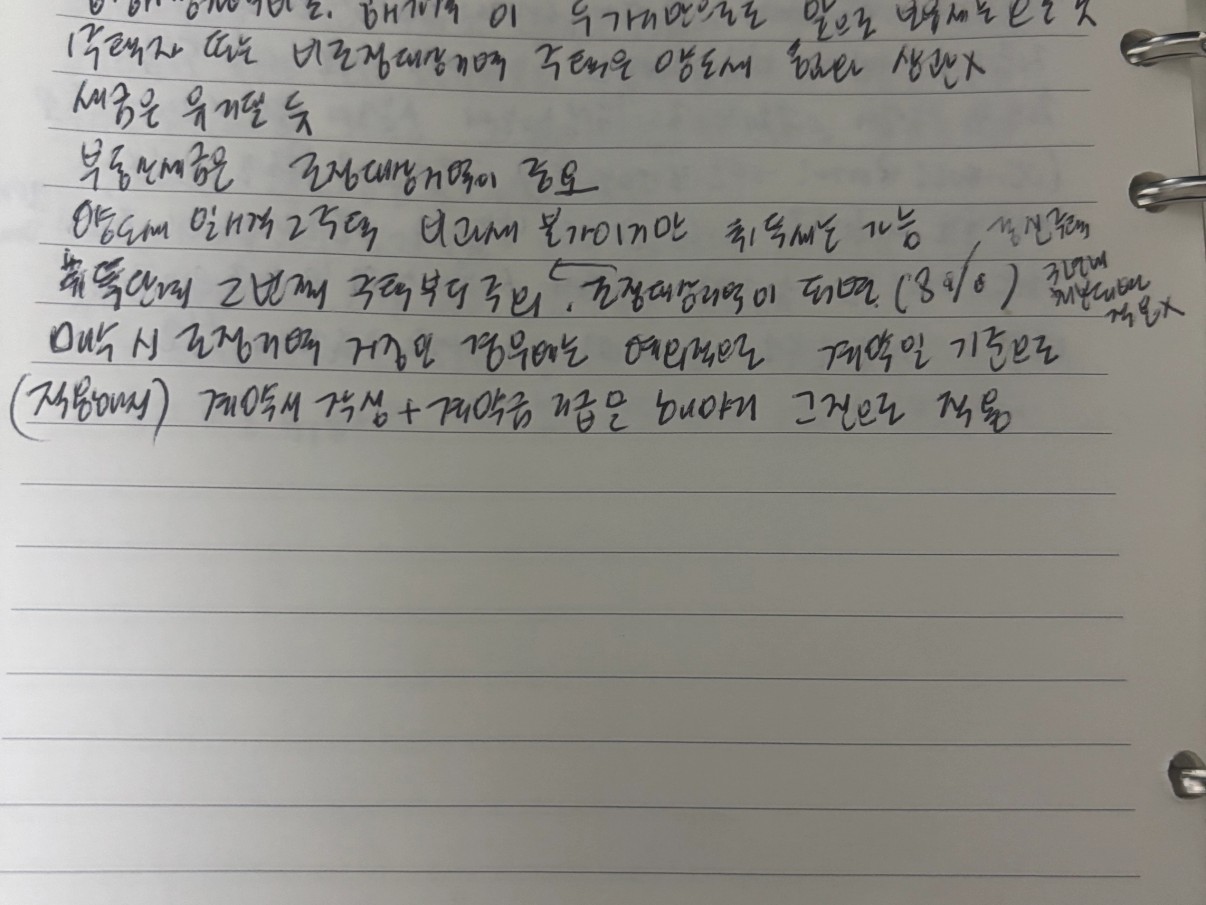 이 두가지만으로도 앞으로 보유세는 오를 것
1주택자 또는 비조정대상지역 주택은 양도세 중과와 상관X
세금은 유지될 듯
부동산세금은 조정대상지역이 중요
양도세 일시적 2주택 비과세 불가이지만 취득세는 가능
취득단계 2번째 주택부터 주의, 조정대상지역이 되면 (8%)
3년내
적용X
매수 시 조정지역 지정인 경우에는 예외적으로 계약일 기준으로
(적용해석) 계약서 작성 + 계약금 지급은 해야지 그전으로 적용